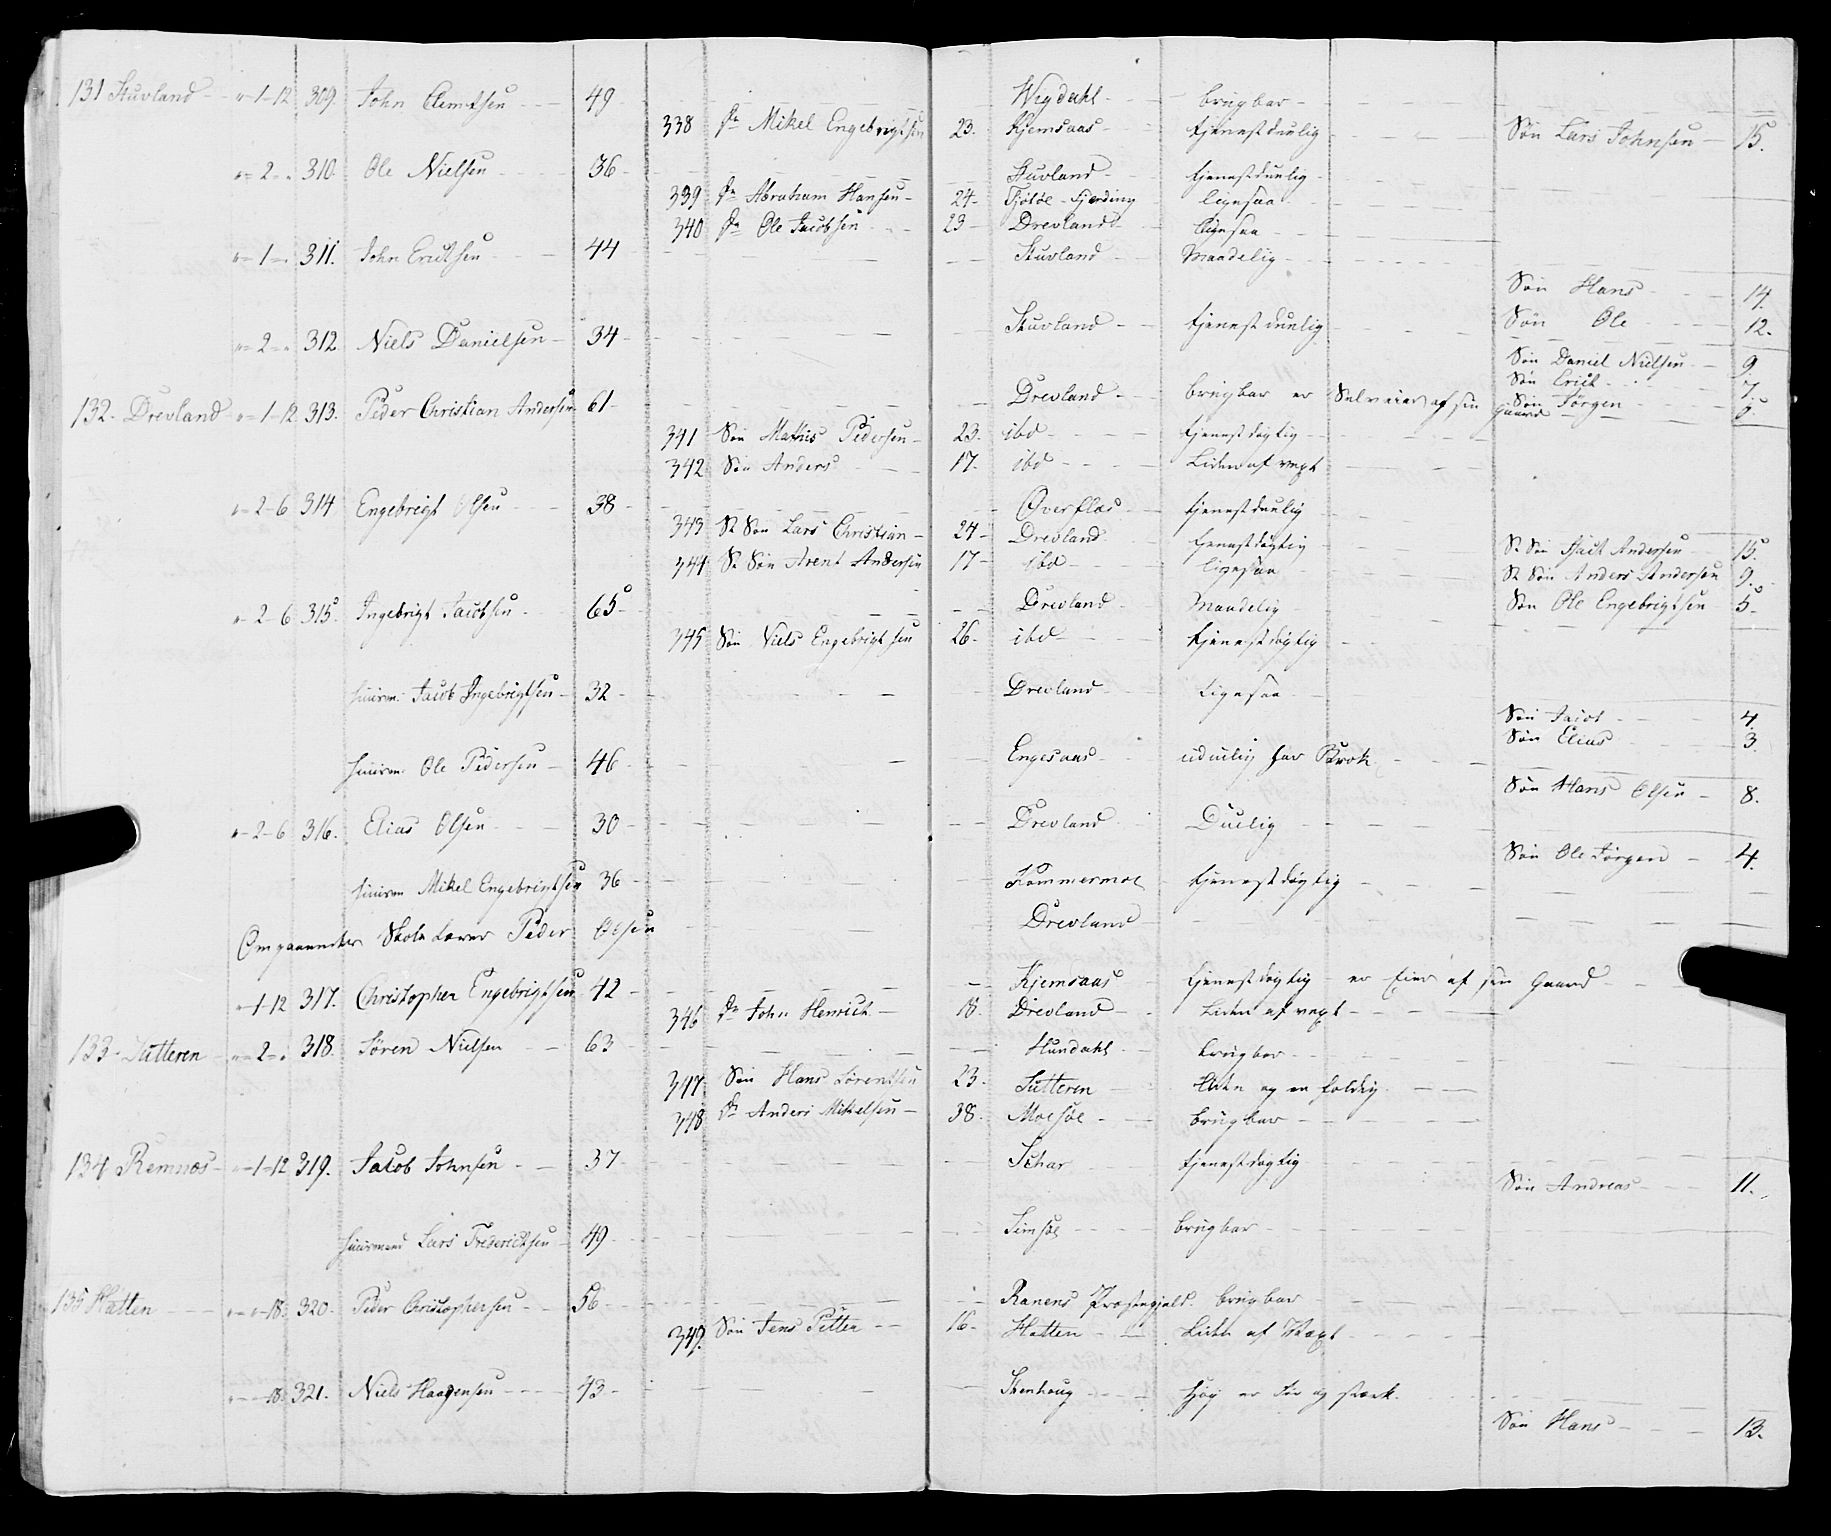 131 Stuvland - „-1-12 309. John Clemtsen - - 49 - - Wegdahl - brugbar -
338 Dr Mikel Engebrigtsen 23. Kjemsaas - tjenestduulig - Søn Lars Johnsen - 15.
„-2-„ 310. Ole Nielsen - 36 - Stuvland - tjenestduulig -
339 Dr Abraham Hansen - 24 - Tjøtøe Fjerding - ligesaa -
340 Dr Ole Jacobsen - 23 - Drevland - ligesaa -
„-1-„ 311. John Erichsen - 44 - Stuvland - Maadelig -
Søn Hans - 14.
Søn Ole - 12.
„-2-„ 312. Niels Danielsen - 34 - Stuvland - tjenestduulig
Søn Daniel Nielsen - 9
Søn Erich - 7.
Søn Jørgen -
132. Drevland „-1-12 313. Peder Christian Andersen 61 - Drevland - brugbar er Selveier af sin Gaard
341 Søn Mathis Pedersen - 23. ibd - tjenestdøgtig -
342 Søn Anders - 17. ibd - Liden af vext
„-2-6 314 Engebrigt Olsen - 38 - Overflos - tjenestduulig
343 St Søn Lars Christian - 24 - Drevland - tjenestdøgtig
344 St Søn Arent Andersen 17 - ibd - ligesaa
St Søn Andersen 15.
St Søn Anders Andersen 9.
Søn Ole Engebrigtsen 5.
„-2-6 315 Ingebrigt Jacobsen - 65 - Drevland - Maadelig
345 Søn Niels Engebrigtsen 26. ibd - tjenestdøgtig
huusm: Jacob Ingebrigtsen - 32 - Drevland - ligesaa
Søn Jacob - 4
Søn Elias - 3
huusm: Ole Pedersen - 46 - Engesaas - uduulig har Brok
Søn Hans Olsen - 8.
„-2-6 316. Elias Olsen - 30 - Drevland - Duelig
Søn Ole Jørgen - 4.
huusm Mikel Engebrintsen 36 - tjenestdøgtig
Omgaaender Skole Lærer Peder Olsen - Drevland
„-1-12 317. Christopher Engebrigtsen 42 - Kjemsaas - tjenestdøgtig - er Eier af sin Gaard -
346 Dr John Henrich - 18. Drevland - Liden af vext -
133 - „-2-„ 318. Søren Nielsen - 63 - Hundahl - brugbar -
347 Søn Hans Sørensen 23. - Liden og en foldig -
348 Dr Anders Mikelsen - 38. - brugbar -
134 Remnæs - „-1-12 319. Jacob Johnsen - 37 - tjenestdøgtig
Søn Andreas - 11.
huusmand Lars Frederichsen - 49 - brugbar -
135 Hatten - „-„-18: 320. Peder Christophersen - 56 - Ranens Præstegield. brugbar -
349. Søn Jens Petter - 16 - Hatten - Liden af Væxt -
„-„-18: 321. Niels Haagensen - 43 - Stenhoug - høy er før og stærk.
Søn Hans - 13.